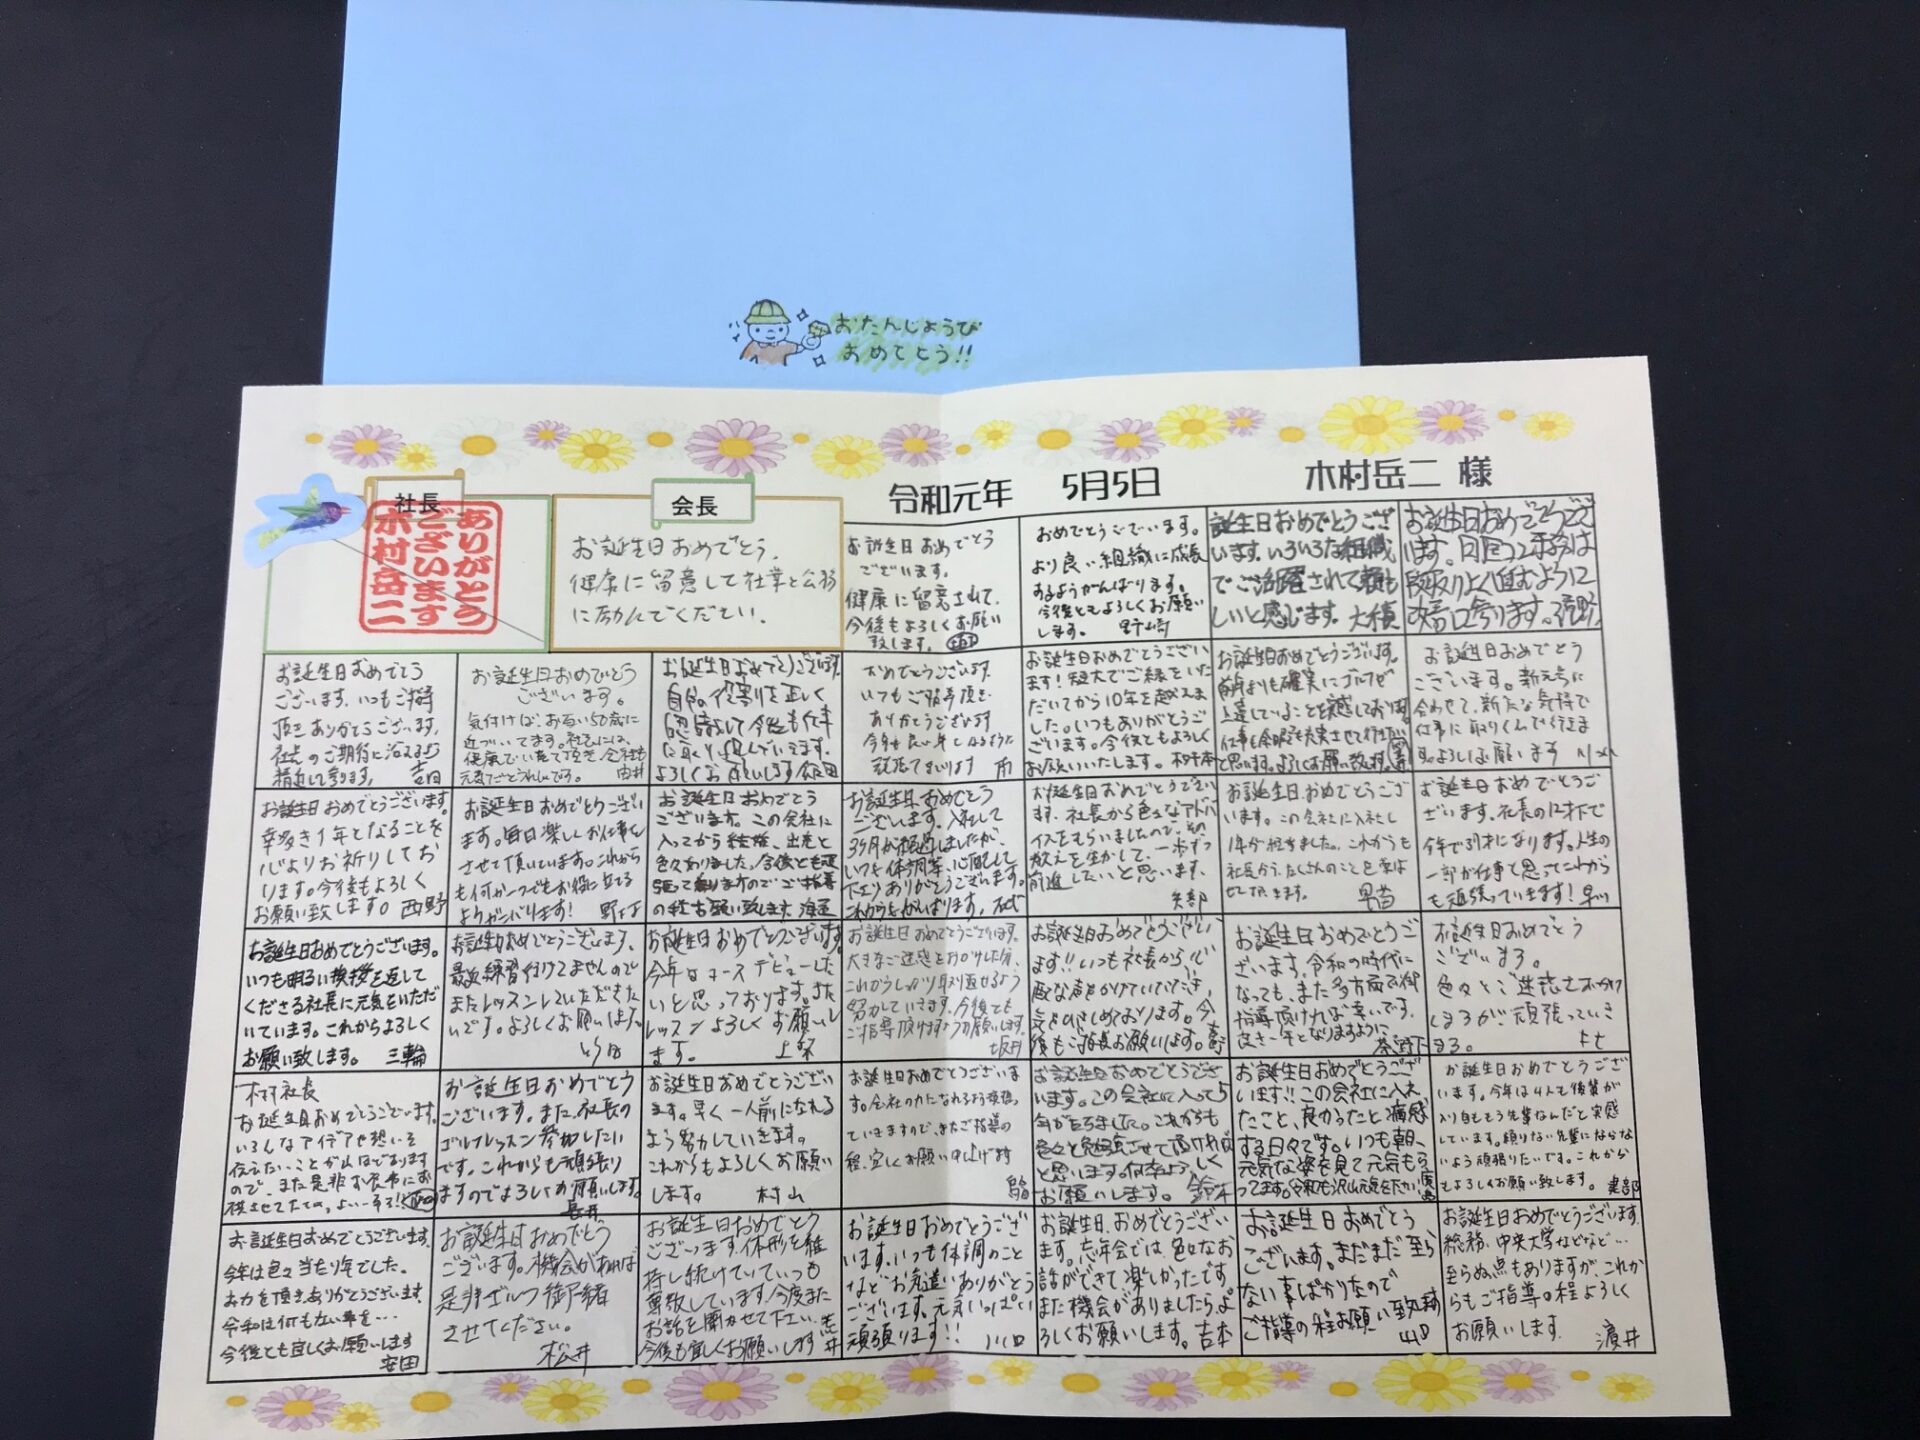 おたんじょうび
おめでとう!!
令和元年 5月5日 木村岳二 様
社長
ありがとう
ございます
木村岳二
会長
お誕生日おめでとう。
健康に留意して社業と公務
に励んでください。
お誕生日おめでとう
ございます。
健康に留意されて、
今後もよろしくお願い
致します。
おめでとうございます。
より良い組織に成長
するようがんばります。
今後ともよろしくお願い
します。 野崎
誕生日おめでとうござ
います。いろいろな組織
でご活躍されて頼も
しいと感じます。大積
お誕生日おめでとう
ございます。いつもご指導
頂き ありがとうございます。
社長のご期待に沿えるよう
精進して参ります。 吉田
お誕生日おめでとう
ございます。
気付けば、お互い50歳に
近づいてます。
お誕生日おめでとうございます。
よろしくお願いします 飯田
おめでとうございます。
いつもご指導頂き
ありがとうございます
お誕生日おめでとうござい
ます!短大でご縁をいた
だいてから10年を越えま
した。いつもありがとうご
ざいます。今後ともよろしく
お願いいたします。 村本
お誕生日おめでとうございます。
お誕生日おめでとう
ございます。新元号に
合わせて、新たな気持で
仕事に取りくんで行きま
す。よろしくお願います
お誕生日おめでとうございます。
幸多き1年となることを
心よりお祈りしてお
ります。今後もよろしく
お願い致します。 西野
お誕生日おめでとうござい
ます。毎日楽しくお仕事を
させて頂いています。これから
も何か一つでもお役に立てる
ようがんばります!
お誕生日おめでとう
ございます。この会社に
入ってから結婚、出産と
色々ありました。今後とも
お誕生日おめでとう
ございます。入社して
3ヶ月が経過しましたが、
いつも体調等、心配して
下さりありがとうございます。
これからもがんばります。
お誕生日おめでとうござい
ます。社長から色々なアドバ
イスをもらいましたので、その
教えを生かして、一歩ずつ
前進したいと思います。
矢部
お誕生日おめでとうござ
います。この会社に入社し
1年が経ちました。これからも
社長から、たくさんのことを学ば
せて頂きます。 早苗
お誕生日おめでとうご
ざいます。社長の12才下で
今年で37才になります。人生の
一部が仕事と思ってこれから
も頑張っていきます! 早川
お誕生日おめでとうございます。
いつも明るい挨拶を返して
くださる社長に元気をいただ
いています。これからよろしく
お願い致します。 三輪
お誕生日おめでとうございます。
最近練習行けてませんので
またレッスンしていただきた
いです。よろしくお願いします。
お誕生日おめでとうございます。
今年はコースデビューした
いと思っております。また
レッスンよろしくお願いし
ます。
お誕生日おめでとうございます。
大きなご迷惑をおかけした分、
これからしっかり取り返せるよう
努力していきます。今後とも
ご指導頂けますようお願いします。
坂井
お誕生日おめでとうござい
ます!!いつも社長から
お誕生日おめでとうご
ざいます。令和の時代に
なっても、また多方面で御
指導頂ければ幸いです。
良き一年となりますように
茶野下
お誕生日おめでとう
ございます。
色々とご迷惑をおかけ
しますが、頑張っていき
ます。
木村社長
お誕生日おめでとうございます。
いろんなアイデアや想いを
伝えたいことが山ほどあります
ので、また是非お食事にお
お誕生日おめでとう
ございます。また、社長の
ゴルフレッスン参加したい
です。これからも頑張り
ますのでよろしくお願いします。
長井
お誕生日おめでとうござい
ます。早く一人前になれる
よう努力していきます。
これからもよろしくお願い
します。 村山
お誕生日おめでとうございま
す。会社の力になれるよう頑張っ
ていきますので、またご指導の
程、宜しくお願い申し上げます
お誕生日おめでとうござ
います。この会社に入って5
年がたちました。これからも
色々と勉強させて頂ければ
と思います。何卒よろしく
お願いします。 鈴木
お誕生日おめでとうござ
います!!この会社に入れ
たこと、良かったと痛感
する日々です。いつも朝、
元気な姿を見て元気もら
ってます。
お誕生日おめでとうござい
ます。今年は4人も後輩が
入り自分もそう先輩なんだと実感
しています。頼りない先輩にならな
いよう頑張りたいです。これから
もよろしくお願い致します。 建部
お誕生日おめでとうございます。
今年は色々当たり年でした。
お力を頂き、ありがとうございます。
令和は何もない事を…
今後とも宜しくお願いします
安田
お誕生日おめでとう
ございます。機会があれば
是非ゴルフ御一緒
させてください。
松井
お誕生日おめでとう
ございます。体形を維
持し続けていていつも
尊敬しています。今度また
お話を聞かせて下さい。
今後も宜しくお願いします
お誕生日おめでとうござ
います。いつも体調のこと
などお気遣いありがとう
ございます。元気いっぱい
頑張ります!! 川口
お誕生日おめでとうござい
ます。忘年会では色々なお
話ができて楽しかったです。
また機会がありましたらよ
ろしくお願いします。 吉本
お誕生日おめでとう
ございます。まだまだ至ら
ない事ばかりなので
ご指導の程お願い致します
山口
お誕生日おめでとうございます。
総務、中央大学などなど…
至らぬ点もありますが、これか
らもご指導の程よろしく
お願いします。 濵井